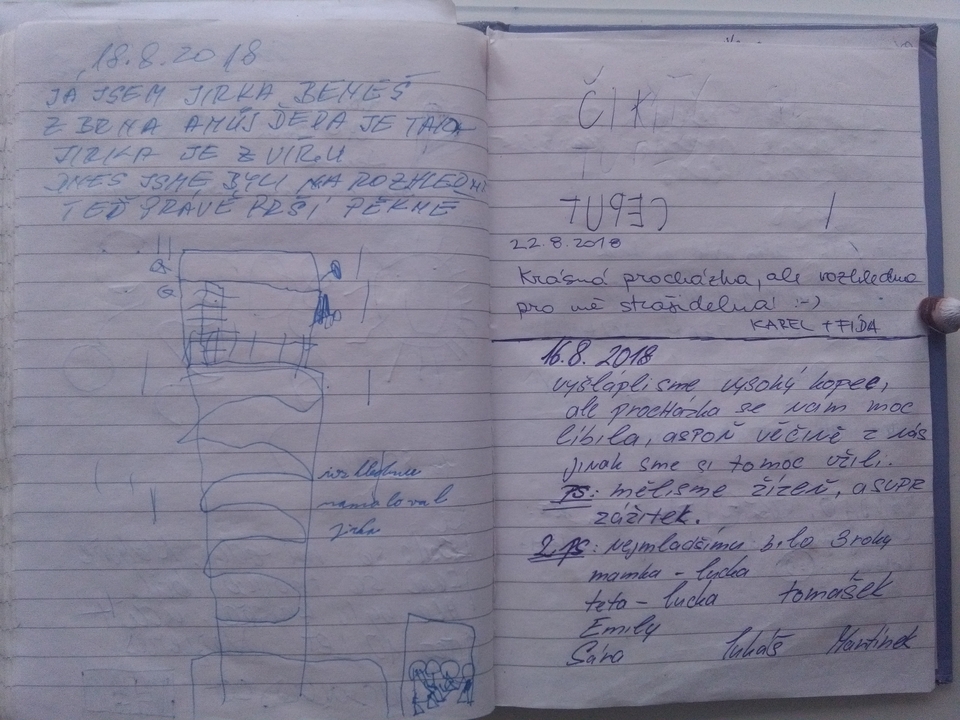 18.8.2018
JÁ JSEM JIRKA BENEŠ
Z BRNA A MŮJ DĚDA JE TAKY
JIRKA JE Z VÍRU
DNES JSME BYLI NA ROZHLEDNĚ
TEĎ PRÁVĚ PRŠÍ PĚKNĚ
rozhlednu
namaloval
jirka
ČIK
22.8.2018
Krásná procházka, ale rozhledna
pro mě strašidelná :-)
KAREL + FÍDA
16.8.2018
vyšláplisme vysoký kopec,
ale procházka se nám moc
líbila, aspoň věčině z nás
jinak sme si tomoc užili.
PS: mělisme žízeň, a SUPR
zážitek.
2 PS: nejmladšímu bilo 3 roky
mamka - lucka
teta - lucka tomášek
Emily
Sára lukáš Martínek